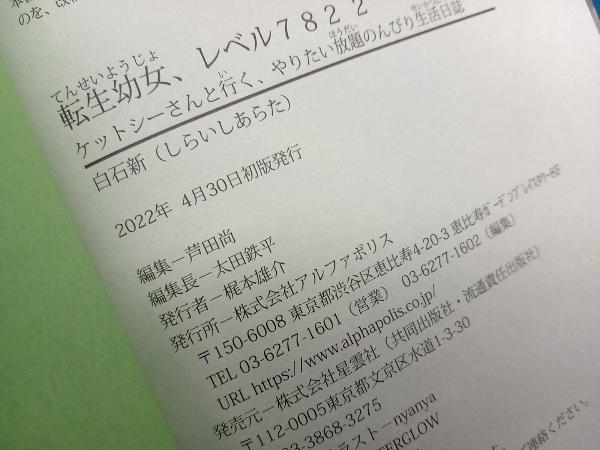 のを、改
てんせいようじょ
転生幼女、レベル7822
い ほうだい せいかつにっし
ケットシーさんと行く、やりたい放題のんびり生活日誌
白石新（しらいしあらた）
2022年 4月30日初版発行
編集－芦田尚
編集長－太田鉄平
発行者－梶本雄介
発行所－株式会社アルファポリス
〒150-6008 東京都渋谷区恵比寿4-20-3 恵比寿ガーデンプレイスタワー8F
TEL 03-6277-1601（営業） 03-6277-1602（編集）
URL https://www.alphapolis.co.jp/
発売元－株式会社星雲社（共同出版社・流通責任出版社）
〒112-0005東京都文京区水道1-3-30
3-3868-3275
ラスト－nyanya
ERGLOW
ご連絡ください。